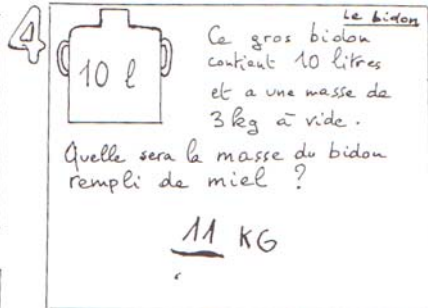 4
Le bidon
10 l
Ce gros bidon
contient 10 litres
et a une masse de
3 kg à vide.
Quelle sera la masse du bidon
rempli de miel ?
11 KG